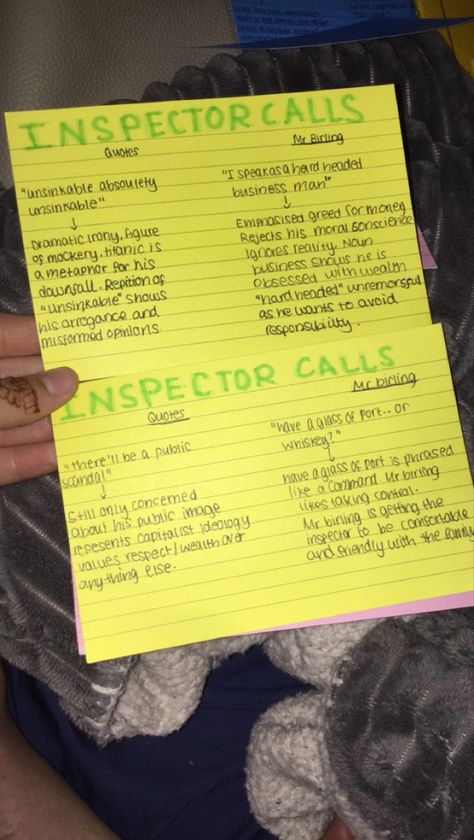 INSPECTOR CALLS
Quotes
Mr Birling
"unsinkable absoulety
unsinkable"
↓
Dramatic irony, figure
of mockery, titanic is
a metaphor for his
downfall. Repition of
"unsinkable" shows
his arrogance and
misformed opinions.
"I speak as a hard headed
business man"
↓
Emphasised greed for money
Rejects his moral conscience
ignores reality. Noun
business shows he is
obsessed with wealth
"hard headed" unremorsful
as he wants to avoid
responsibility.
INSPECTOR CALLS
Quotes
Mr birling
"there'll be a public
scandal"
↓
Still only concerned
about his public image
repesents capitalist ideology
values respect/wealth over
anything else.
"have a glass of port... or
whiskey?"
↓
have a glass of port is phrased
like a command Mr birling
likes taking control.
Mr birling is getting the
inspector to be comfortable
and friendly with the family